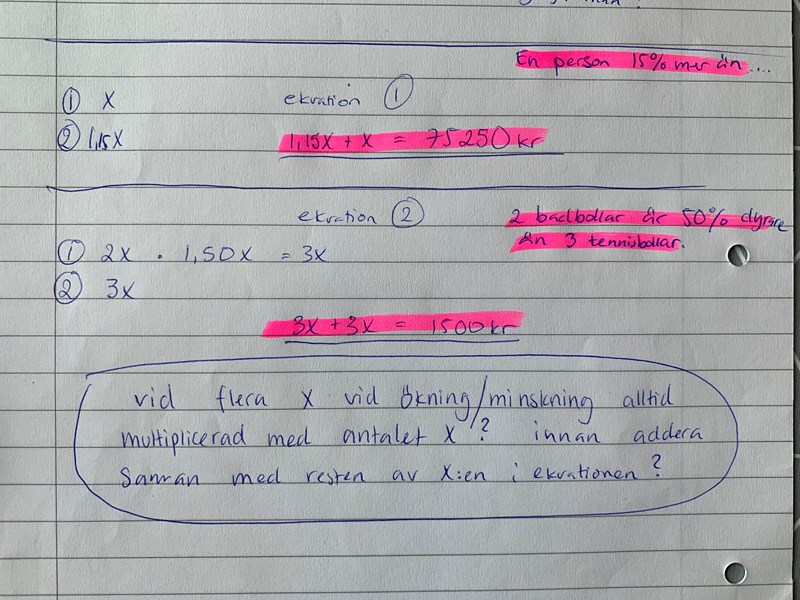 En person 15% mer än....
① x ekvation ①
② 1,15x 1,15x + x = 75250kr
ekvation ② 2 badbollar är 50% dyrare
än 3 tennisbollar.
① 2x · 1,50x = 3x
② 3x
3x + 3x = 1500kr
vid flera x vid ökning/minskning alltid
multiplicerad med antalet x? innan addera
samman med resten av x:en i ekvationen?